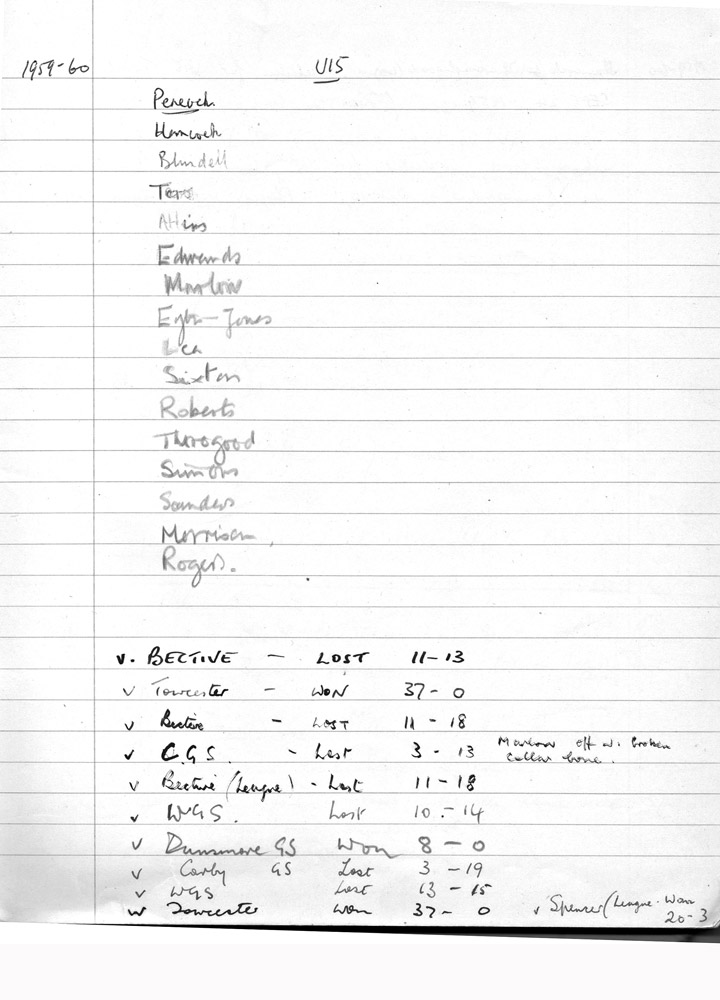 1959-60 U15
Hancock
Blundell
Atkins
Edwards
Marlow
Jones
Lea
Sixton
Roberts
Thorogood
Simons
Saunders
Morrison
Rogers.
v. BECTIVE — LOST 11-13
v Towcester — WON 37-0
v Bective - LOST 11-18
v C.G.S. - Lost 3-13 Marlow off w. broken
collar bone.
v Bective (League) - Lost 11-18
v WGS. Lost 10-14
v Dunsmore GS Won 8-0
v Corby GS Lost 3-19
v WGS Lost 13-15
v Towcester won 37-0 v Spencer (League. Won
20-3